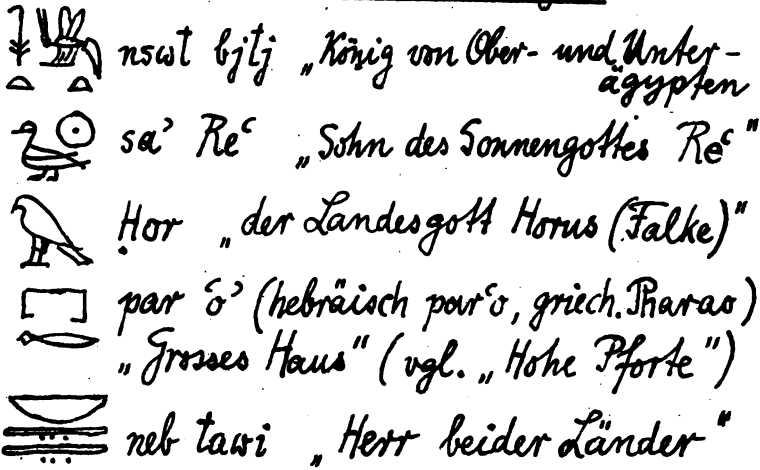 nswt bjtj „König von Ober- und Unter-
ägypten
sa’ Reʿ „Sohn des Sonnengottes Reʿ"
Ḥor „der Landesgott Horus (Falke)"
par ʿo’ (hebräisch parʿo, griech. Pharao)
„Grosses Haus" (vgl. „Hohe Pforte")
neb tawi „Herr beider Länder"